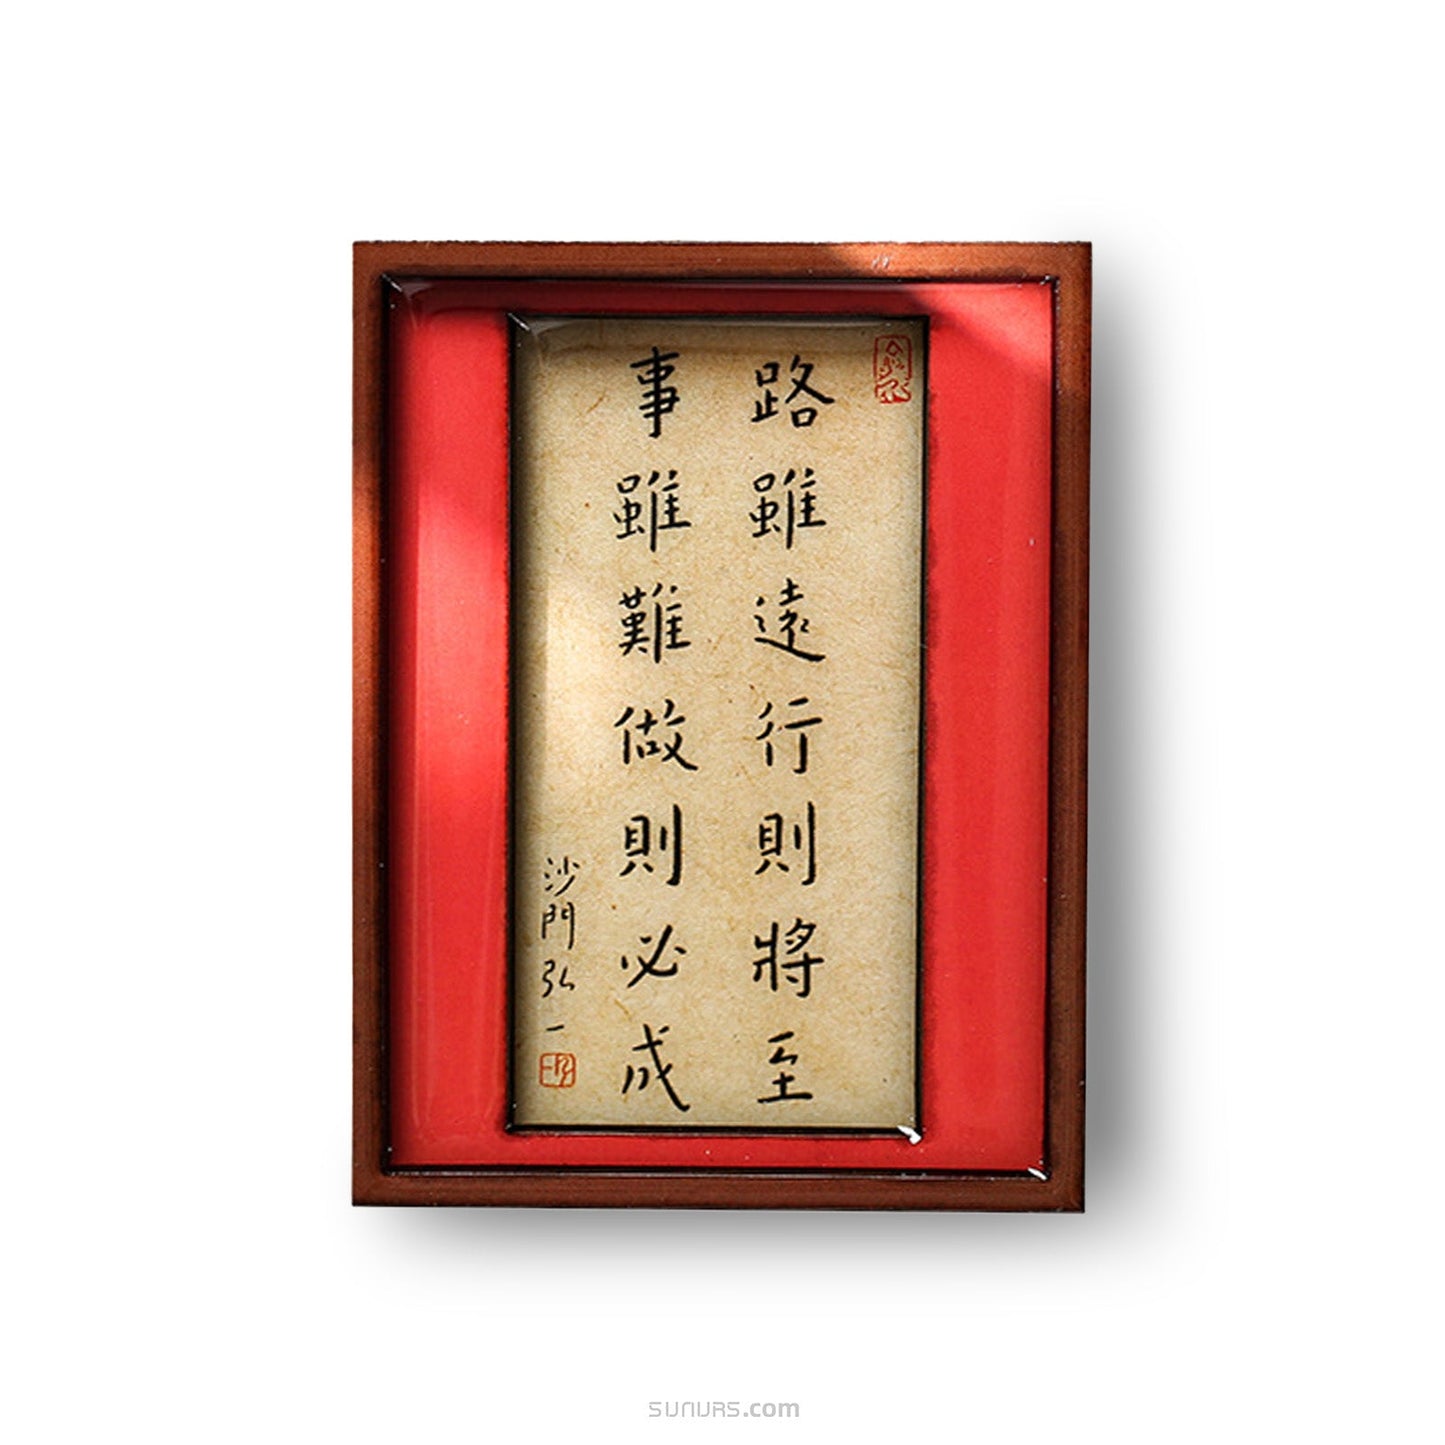 路雖遠行則將至
事雖難做則必成
沙門弘一
SUNURS.com